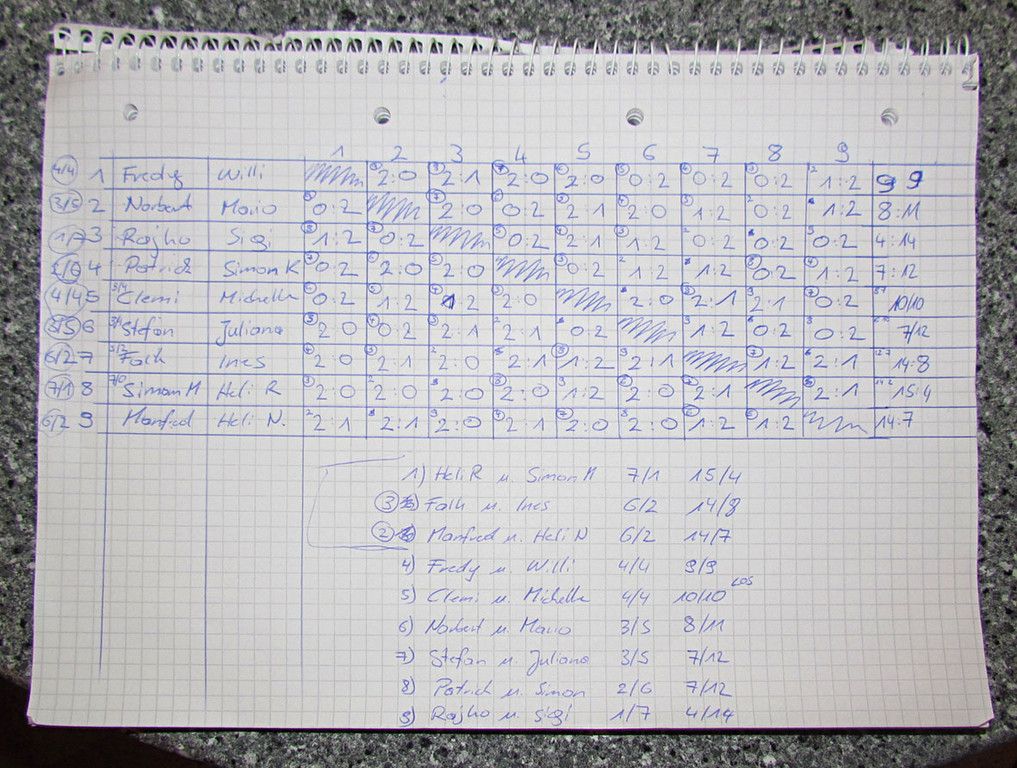 1 2 3 4 5 6 7 8 9
4/4 1 Fredy Willi 2:0 2:1 2:0 2:0 0:2 0:2 0:2 1:2 9 9
3/5 2 Norbert Mario 0:2 2:0 0:2 2:1 2:0 1:2 0:2 1:2 8:11
1/7 3 Rajko Sigi 1:2 0:2 0:2 2:1 1:2 0:2 0:2 0:2 4:14
2/6 4 Patrick Simon K 0:2 2:0 2:0 0:2 1:2 1:2 0:2 1:2 7:12
4/4 5 Clemi Michelle 0:2 1:2 1:2 2:0 2:0 2:1 2:1 0:2 10/10
3/5 6 Stefan Juliana 2:0 0:2 2:1 2:1 0:2 1:2 0:2 0:2 7/12
6/2 7 Falk Ines 2:0 2:1 2:0 2:1 1:2 2:1 1:2 2:1 14:8
7/1 8 Simon M Heli R 2:0 2:0 2:0 2:0 1:2 2:0 2:1 2:1 15:4
6/2 9 Manfred Heli N. 2:1 2:1 2:0 2:1 2:0 2:0 1:2 1:2 14:7
1) Heli R u. Simon M 7/1 15/4
3 Falk u. Ines 6/2 14/8
2 Manfred u. Heli N 6/2 14/7
4) Fredy u. Willi 4/4 9/9
5) Clemi u. Michelle 4/4 10/10 LOS
6) Norbert u. Mario 3/5 8/11
7) Stefan u. Juliana 3/5 7/12
8) Patrick u. Simon 2/6 7/12
9) Rajko u. Sigi 1/7 4/14